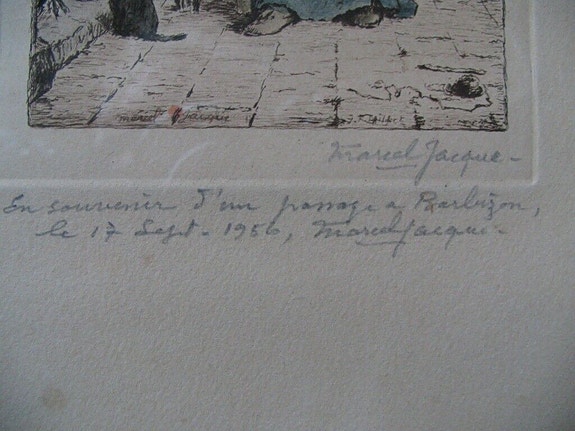 marcel Jacque
Marcel Jacque
En souvenir d'un passage a Barbizon,
le 17 Sept. 1956, Marcel Jacque